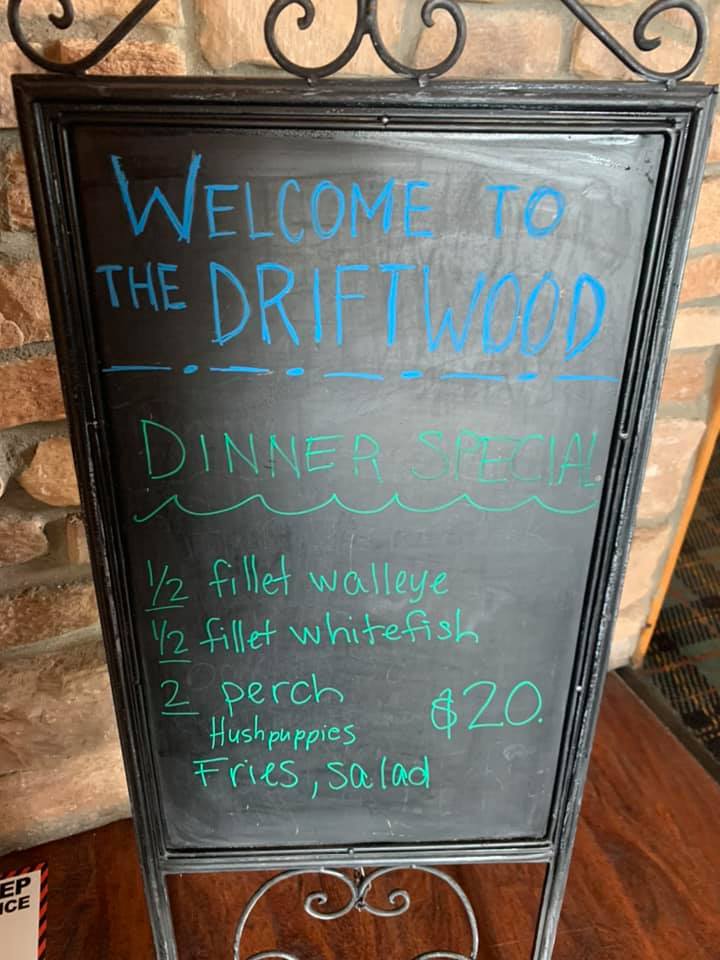 WELCOME TO
THE DRIFTWOOD
DINNER SPECIAL
1/2 fillet walleye
1/2 fillet whitefish
2 perch
$20.
Hushpuppies
Fries, salad
EP
ICE